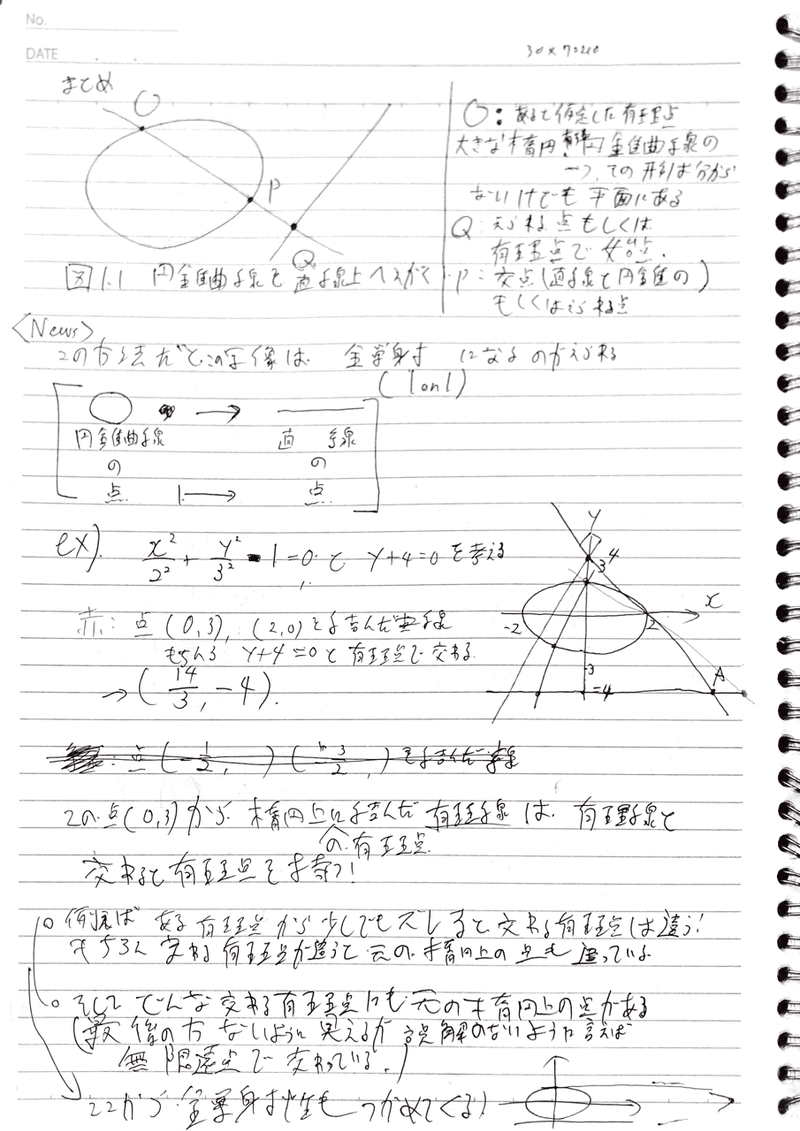 No.
DATE . .
30×7=210
まとめ
O
P
Q
O: あると仮定した有理点
大きな楕円 有理円錐曲線の
一つ、その形は分から
ないけども平面にある
Q: えられる点もしくは
有理点で始点.
P: 交点(直線と円錐の)
もしくはえられる点
図1.1 円錐曲線を直線上へえがく
〈News〉
この方法だとこの写像は 全単射 になるのがえられる
(1on1)
円錐曲線 直線
の の
点 ↦ 点
ex). x²/2² + y²/3² - 1 = 0 と y+4=0 を考える
赤: 点 (0,3), (2,0) とを結んだ直線
もちろん y+4=0 と有理点で交わる
→ (14/3, -4).
y
4
3
x
-2
2
3
-4
A
この点(0,3)から 楕円上に結んだ有理線は 有理線と
の有理点
交わると有理点を持つ!
○ 例えば ある有理点から少しでもズレると交わる有理点は違う!
もちろん 交わる有理点が違うと元の楕円上の点も違っている
○ そして どんな交わる有理点にも元の楕円上の点がある
(最後の方ないように見えるが誤解のないように言えば
無限遠点で交わっている.)
ここから全単射性もつかめてくる)